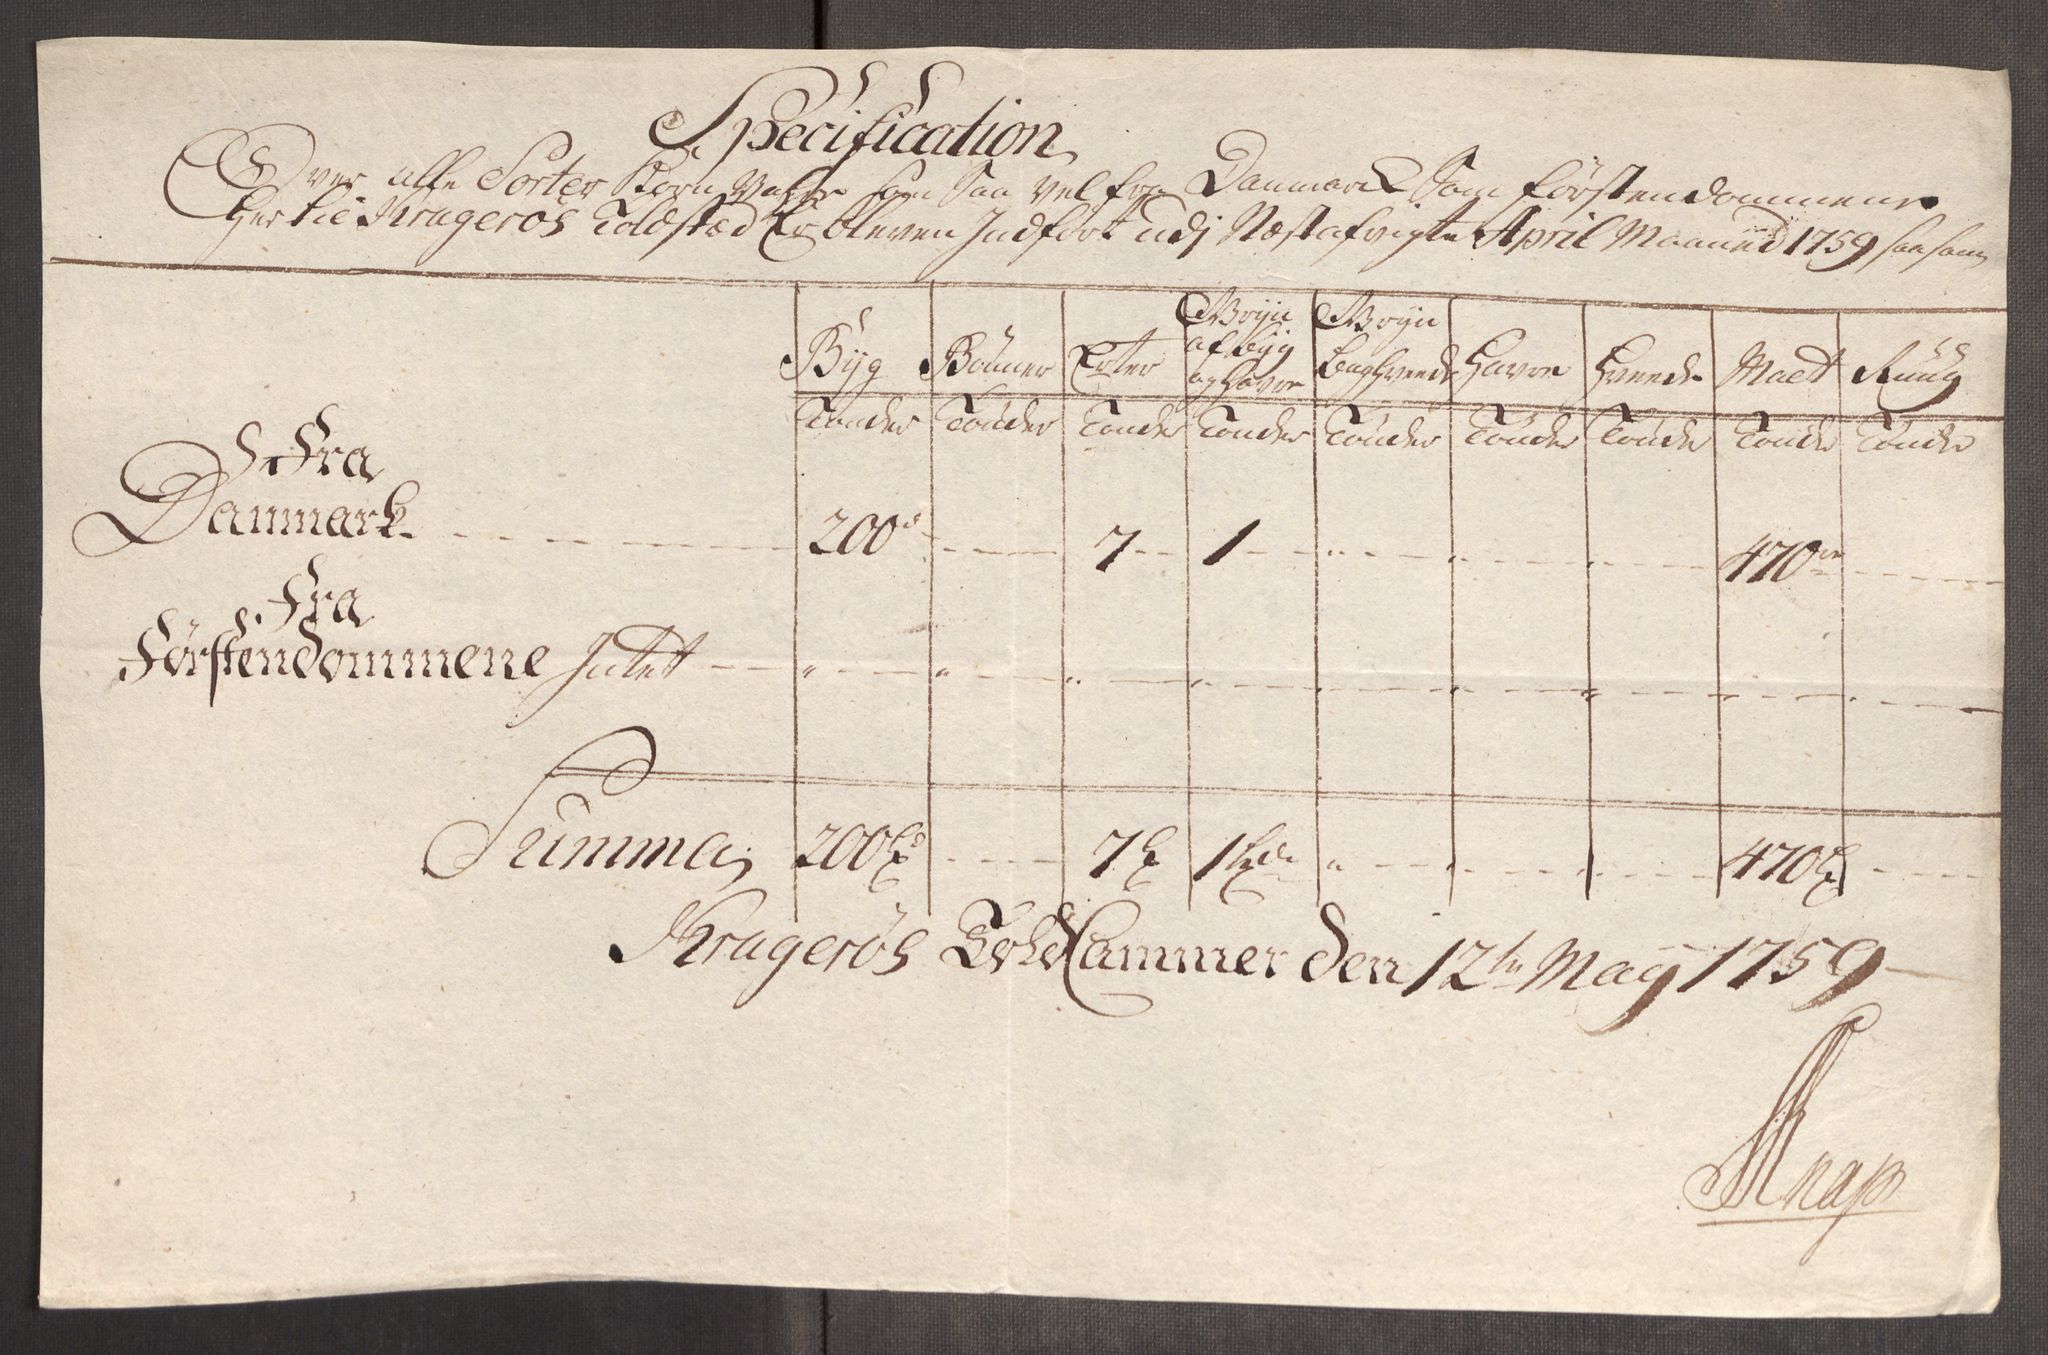 Specification
Over alle Sorter Korn Vahre som Saa vel fra Danmark Som förstendommene
Her til Krageröes Toldsted Er bleven Indfört udj Næstafvigte April Maaned 1759 saasom
Byg Bönner Erter Gryn af byg og Havre Gryn boghveede Havre Hveede Malt Rüüg
Tönder Tönder Tönder Tönder Tönder Tönder Tönder Tönder Tönder
Fra
Danmark 200 7 1 470
Fra
Förstendommene Intet
Summa 200 7 1 470
Krageröes Told Cammer den 12te Maÿ 1759
Knap